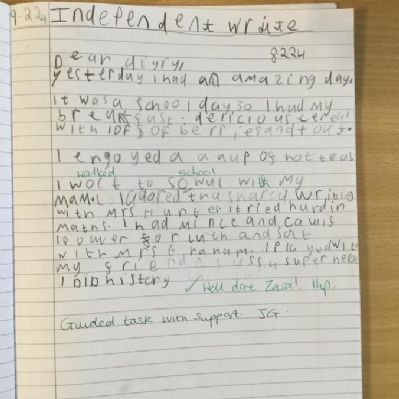 9.2.24 Independent write
8224
Dear diary,
yesterday I had an amazing day.
It was a school day so I had my
breakfast: dericious cereal
with lots of berries and toast.
I engoyed a a cup of hot tea
walked school
I wolt to sowul with my
Mam. I adored the shared writing
with Mrs Huntes. I tried hard in
maths. I had mince and
for luth and sat
with Mrs Graham. I playd wit
my friend a super hero
I DID history
✓ Well done Zara! 1hp.
Guided task with support. SG.